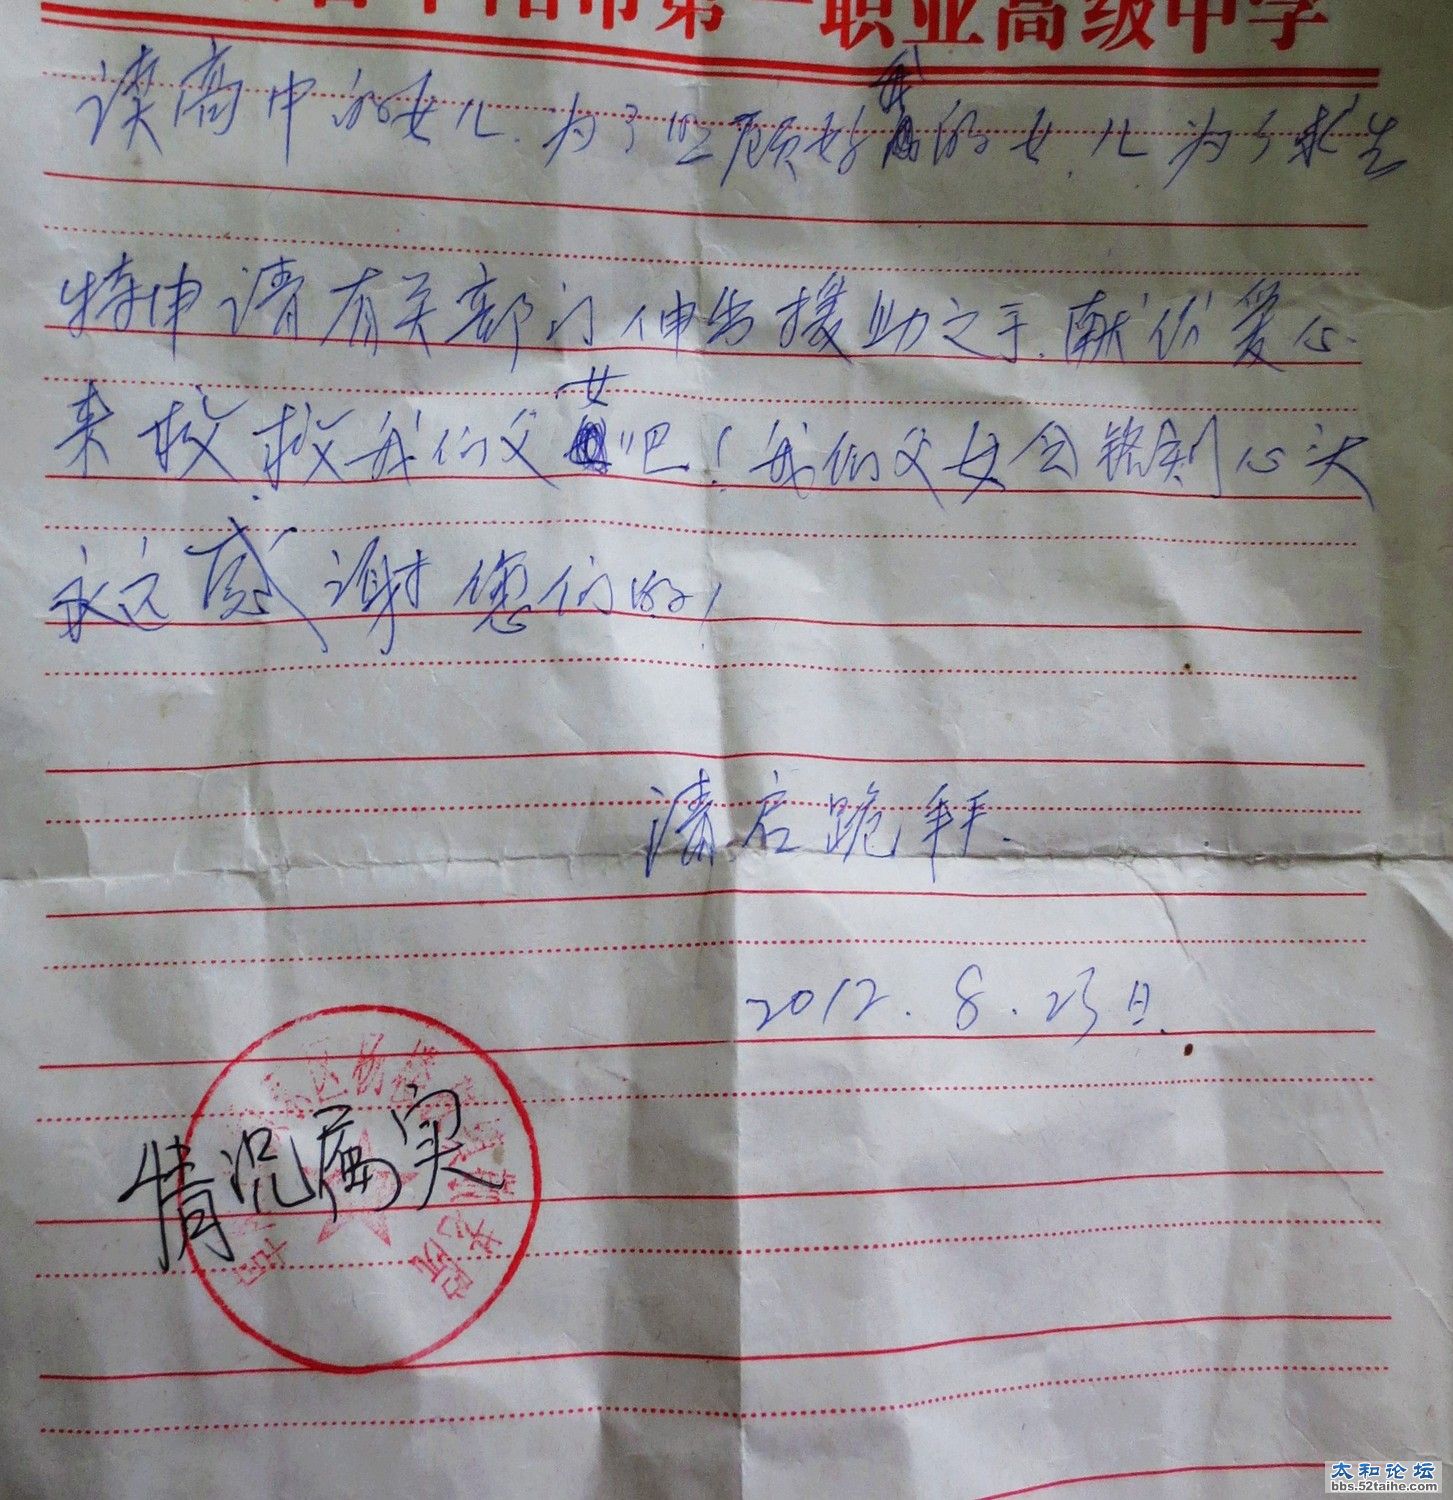 市第一职业高级中学
读高中的女儿.为了照顾好我的女儿为了求生
特申请有关部门伸出援助之手.献份爱心.
来救救我们父女吧!我们父女会铭刻心头
永远感谢您们的!
2012.8.23日.
情况属实
太和论坛
bbs.52taihe.com